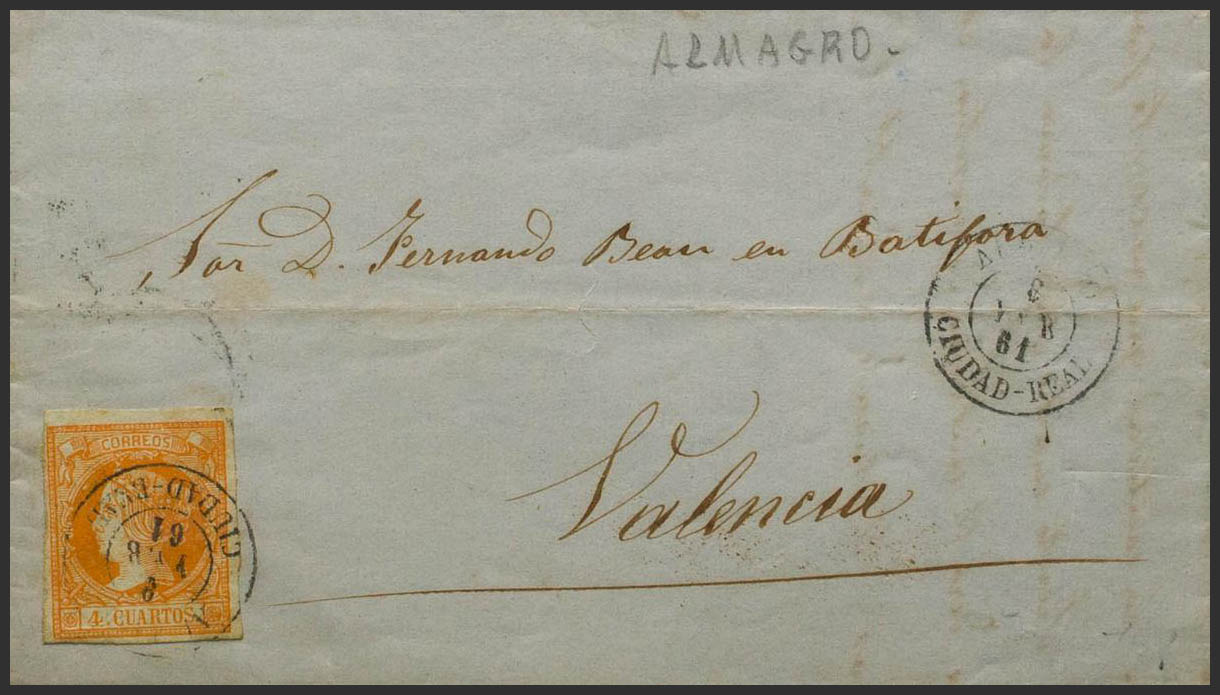 ALMAGRO-
Sor D. Fernando Bean en Batifora
61
CIUDAD-REAL
Valencia
CORREOS
CIUDAD-REAL
61
4 CUARTOS